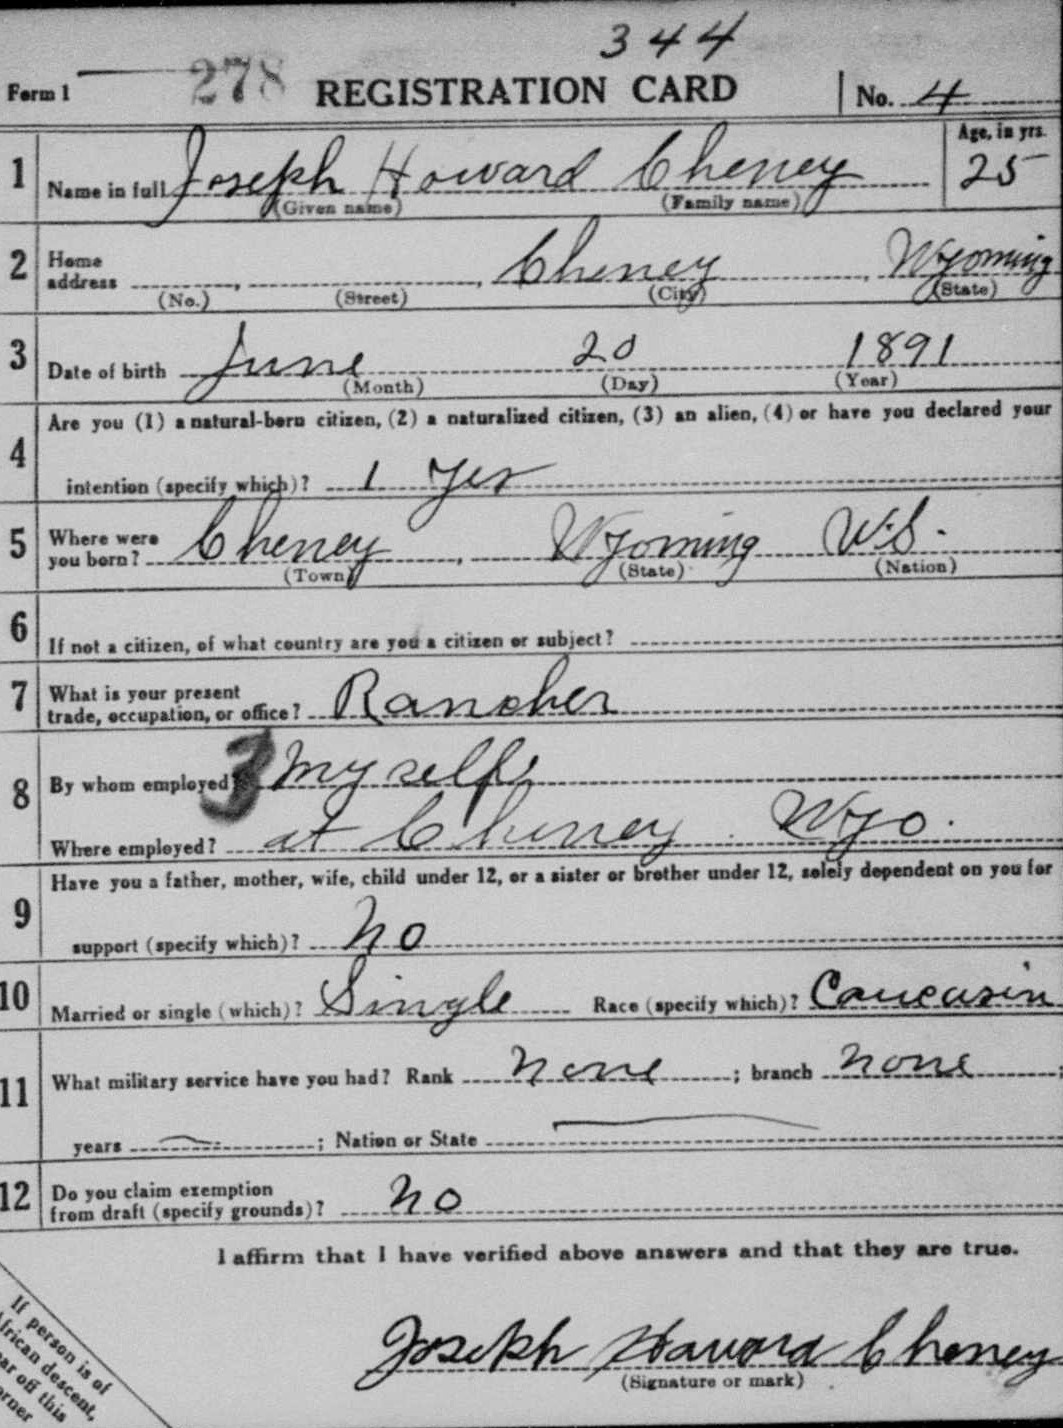 344
Form 1 278 REGISTRATION CARD No. 4
1 Name in full Joseph Howard Cheney Age, in yrs. 25
(Given name) (Family name)
2 Home address Cheney, Wyoming
(No.) (Street) (City) (State)
3 Date of birth June 20 1891
(Month) (Day) (Year)
4 Are you (1) a natural-born citizen, (2) a naturalized citizen, (3) an alien, (4) or have you declared your
intention (specify which)? 1 Yes
5 Where were you born? Cheney, Wyoming U.S.
(Town) (State) (Nation)
6 If not a citizen, of what country are you a citizen or subject?
7 What is your present
trade, occupation, or office? Rancher
8 By whom employed? 3 Myself
Where employed? at Cheney. Wyo.
9 Have you a father, mother, wife, child under 12, or a sister or brother under 12, solely dependent on you for
support (specify which)? No
10 Married or single (which)? Single Race (specify which)? Caucasin
11 What military service have you had? Rank None ; branch None ;
years ; Nation or State
12 Do you claim exemption
from draft (specify grounds)? No
I affirm that I have verified above answers and that they are true.
Joseph Howard Cheney
(Signature or mark)
If person is of
African descent,
tear off this
corner